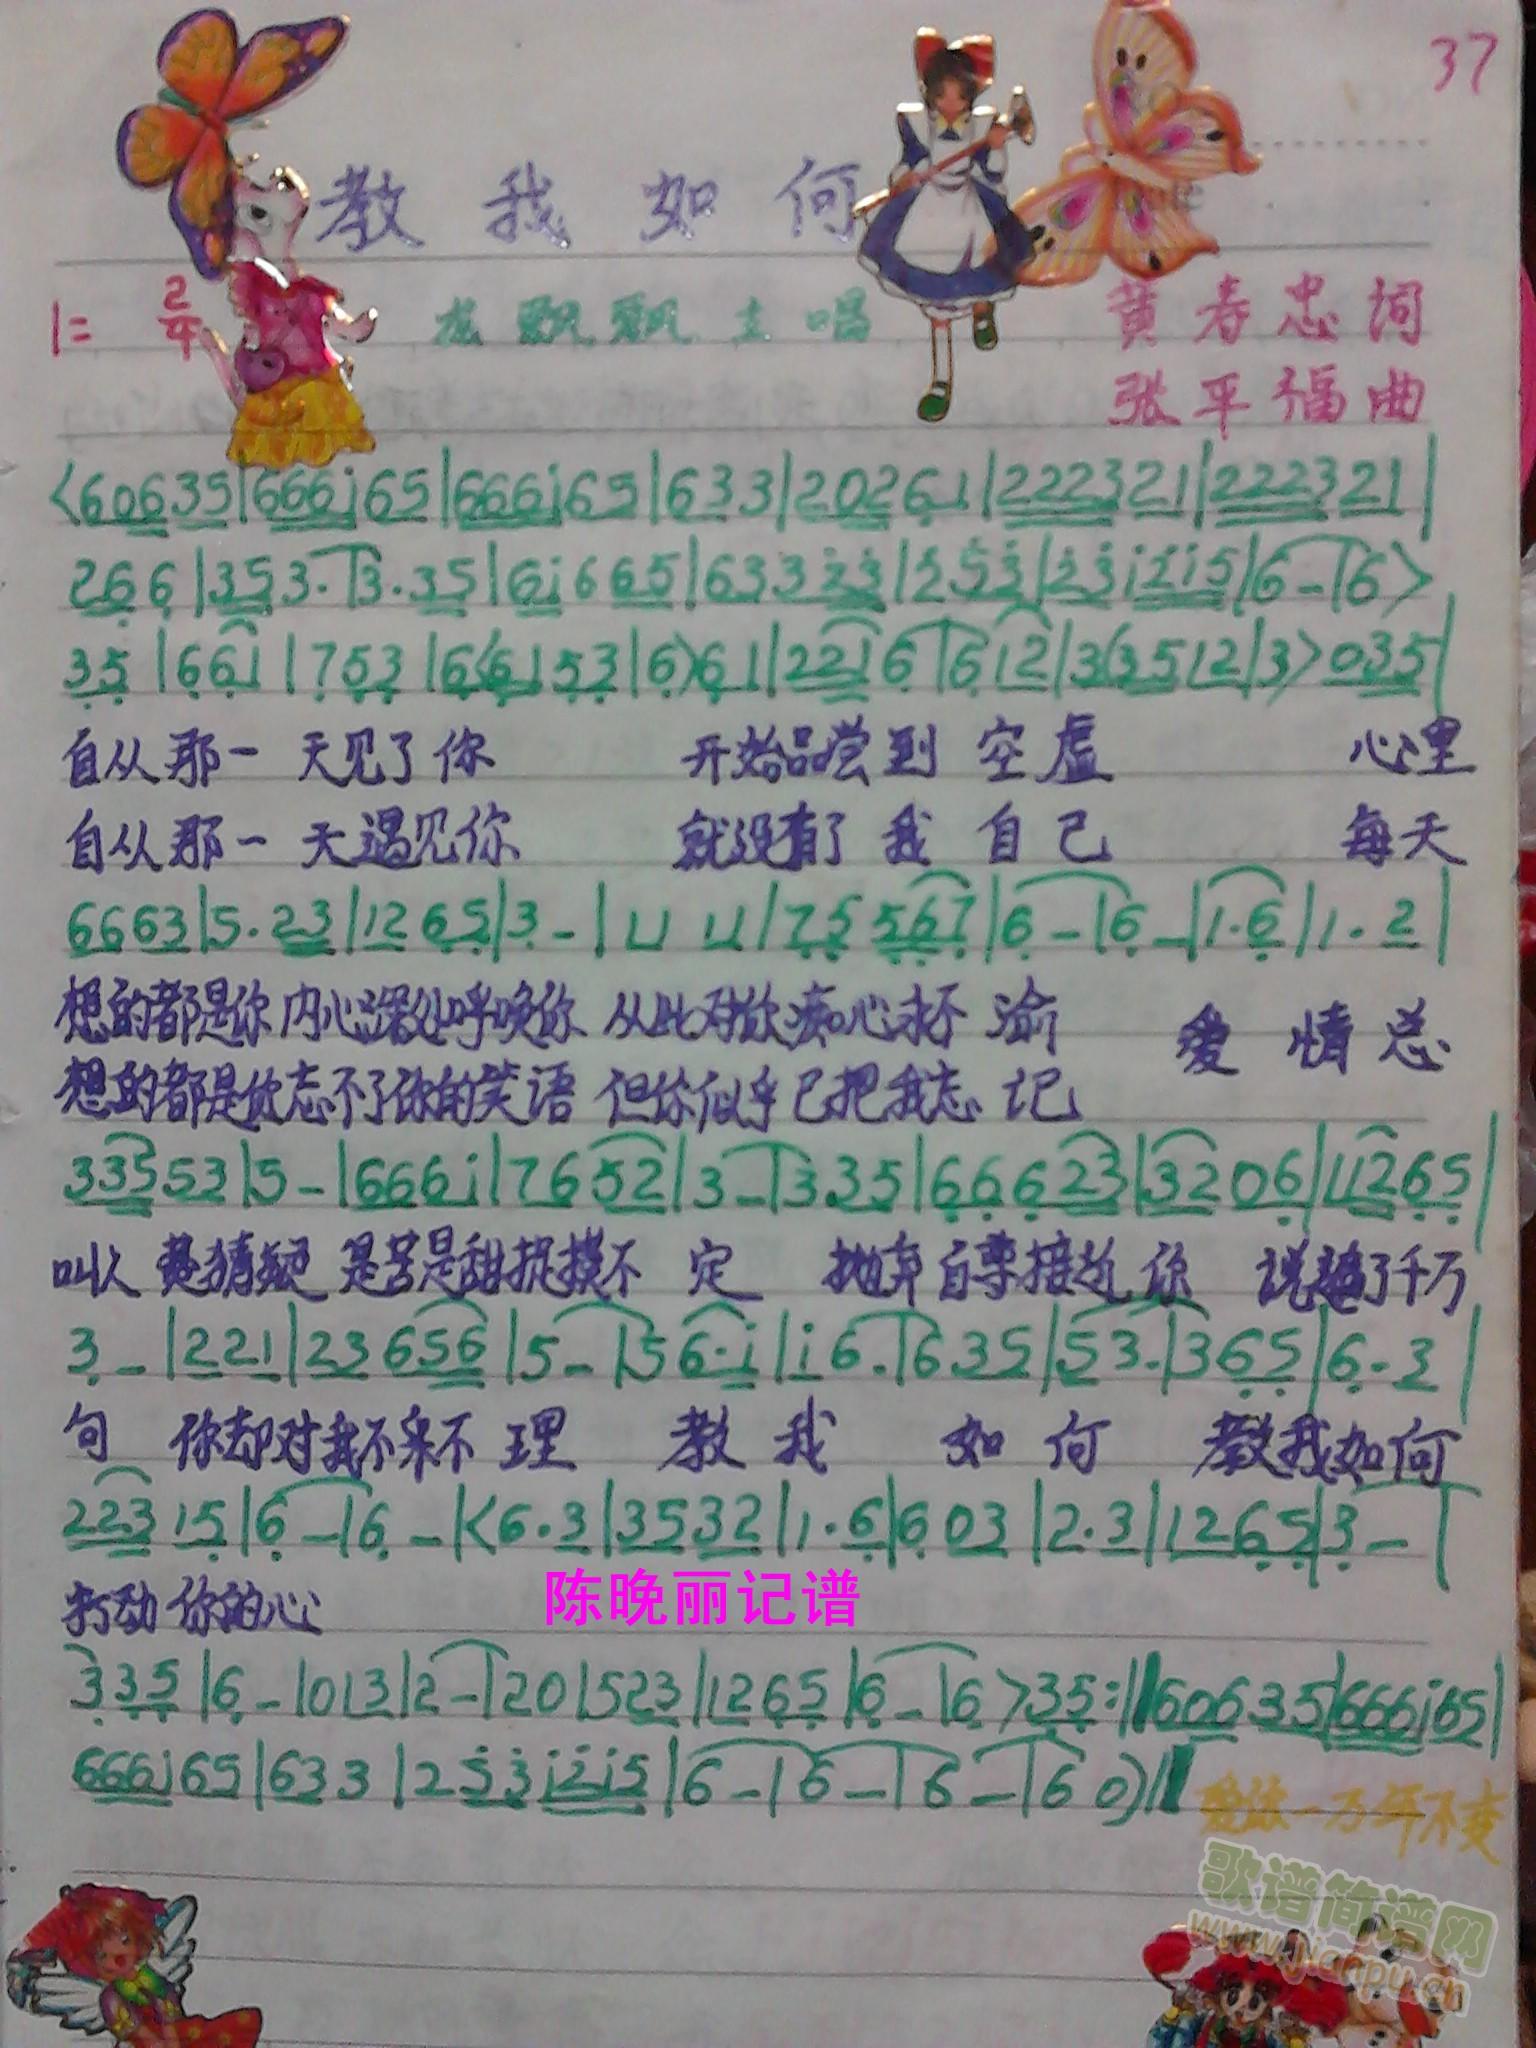 37
教我如何
1= 2/4 龙飘飘主唱 黄春忠词
张平福曲
<60635|666i65|666i65|633|20261|222321|222321|
266|353.|3.35|6i665|63323|253|23i2i5|6-|6>
35|661|7053|6<6153|6>61|2216|612|3<3512|3>035|
自从那一天见了你 开始品尝到空虚 心里
自从那一天遇见你 就没有了我自己 每天
6663|5.23|1265|3-|11 11|75567|6-|6-|1.6|1.2|
想的都是你内心深处呼唤你 从此对你痴心永不渝 爱情总
想的都是你忘不了你的笑语 但你似乎已把我忘记
33553|5-|666i|7652|3-|335|66623|3206|11265|
叫人费猜疑是苦是甜捉摸不定 抛弃自尊接近你 说过了千万
3-|221|23656|5-|56.i|i6.|635|53.|365|6.3|
句 你却对我不采不理 教我如何 教我如何
22315|6-|6-|<6.3|3532|1.6|603|2.3|1265|3-|
打动你的心
陈晚丽记谱
335|6-|013|2-|20|523|1265|6-|6>35:||60635|666i65|
666i65|633|253i2i5|6-|6-|6-|60)||
爱你一万年不变
歌谱简谱网
www.jianpu.cn